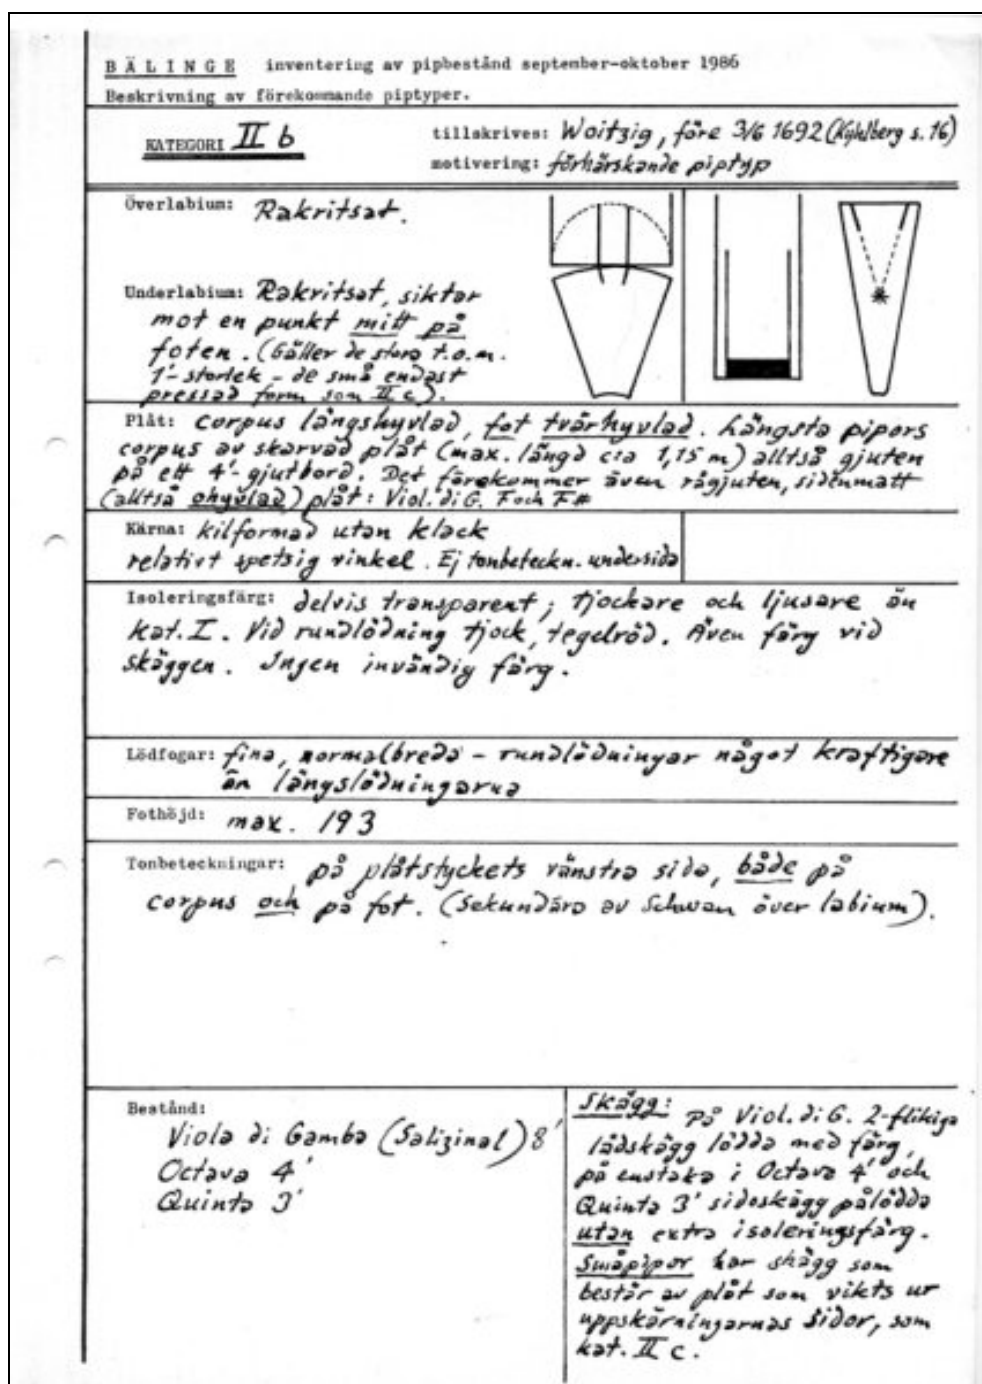 BÄLINGE inventering av pipbestånd september-oktober 1986
Beskrivning av förekommande piptyper.
KATEGORI II b
tillskrives: Woitzig, före 3/6 1692 (Kyhlberg s. 16)
motivering: förhärskande piptyp
Överlabium: Rakritsat.
Underlabium: Rakritsat, siktar
mot en punkt mitt på
foten. (Gäller de stora t.o.m.
1'-storlek - de små endast
pressad form som II c).
Plåt: corpus långshyvlad, fot tvärhyvlad. Längsta pipors
corpus av skarvad plåt (max. längd c:a 1,15 m) alltså gjuten
på ett 4'-gjutbord. Det förekommer även rågjuten, sidenmatt
(alltså ohyvlad) plåt: Viol. di G. F och F#
Kärna: kilformad utan klack
relativt spetsig vinkel. Ej tonbeteckn. undersida
Isoleringsfärg: delvis transparent; tjockare och ljusare än
kat. I. Vid rundlödning tjock, tegelröd. Även färg vid
skäggen. Ingen invändig färg.
Lödfogar: fina, normalbreda - rundlödningar något kraftigare
än längslödningarna
Fothöjd: max. 193
Tonbeteckningar: på plåtstyckets vänstra sida, både på
corpus och på fot. (Sekundära av Schwan över labium).
Bestånd:
Viola di Gamba (Salizinal) 8'
Octava 4'
Quinta 3'
Skägg: På Viol. di G. 2-flikiga
lådskägg lödda med färg,
på enstaka i Octava 4' och
Quinta 3' sidoskägg pålödda
utan extra isoleringsfärg.
Småpipor har skägg som
består av plåt som vikts ur
uppskärningarnas sidor, som
kat. II c.